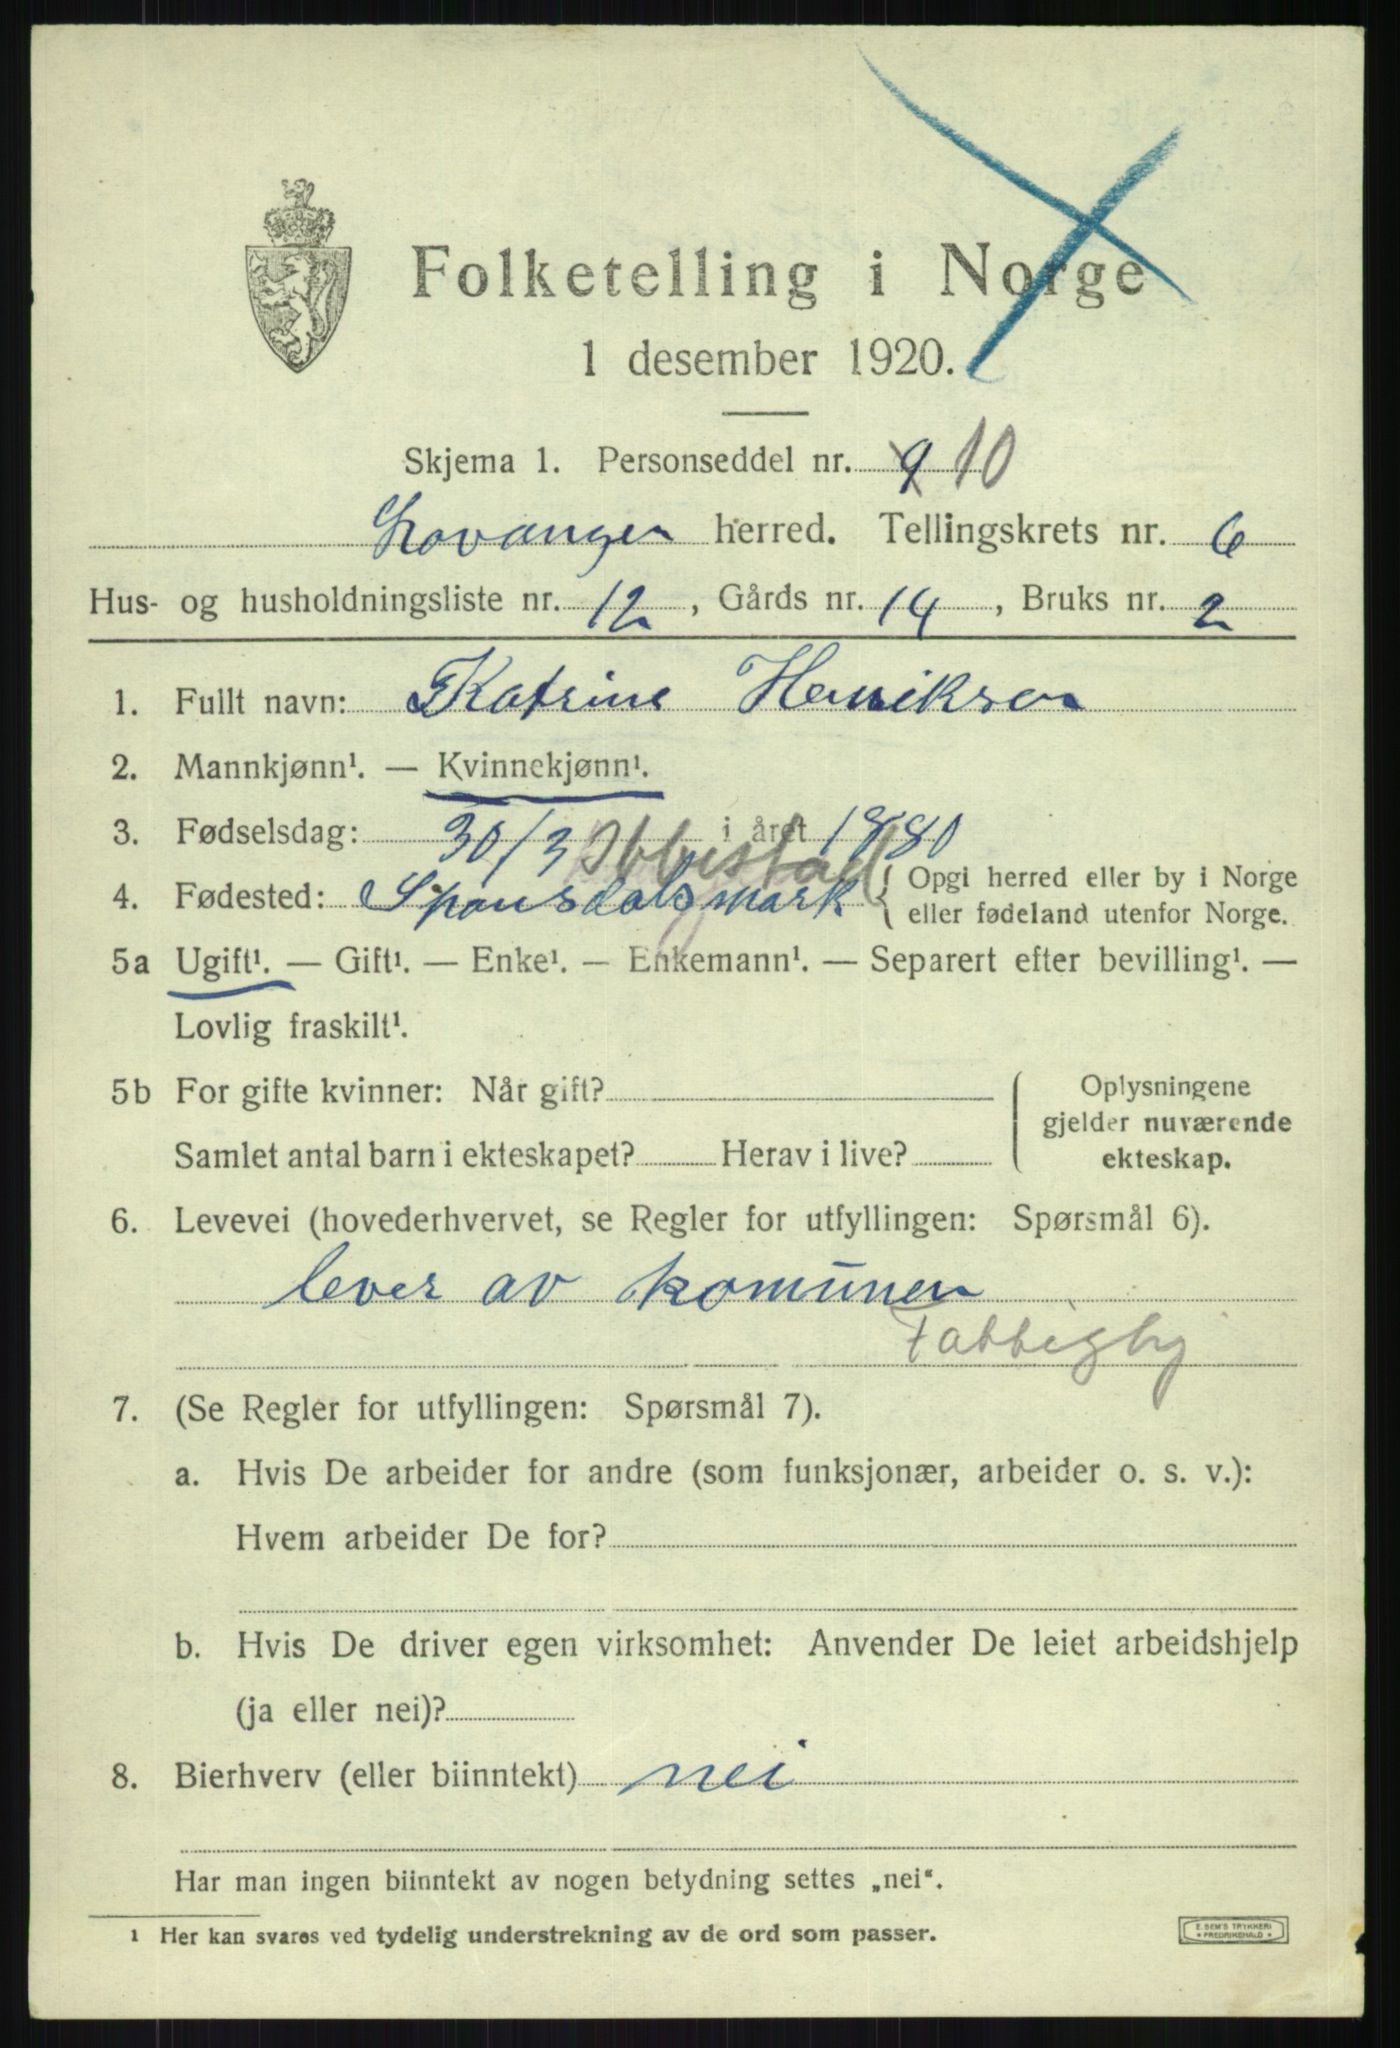 Folketelling i Norge
1 desember 1920.
Skjema 1. Personseddel nr. 9 10
Lavangen herred. Tellingskrets nr. 6
Hus- og husholdningsliste nr. 12, Gårds nr. 14, Bruks nr. 2
1. Fullt navn: Katrine Henriksen
2. Mannkjønn¹. — Kvinnekjønn¹.
3. Fødselsdag: 30/3 i året 1880
Ibbestad
4. Fødested: Spansdalsmark { Opgi herred eller by i Norge
eller fødeland utenfor Norge.
5a Ugift¹. — Gift¹. — Enke¹. — Enkemann¹. — Separert efter bevilling¹. —
Lovlig fraskilt¹.
5b For gifte kvinner: Når gift?
Samlet antal barn i ekteskapet? Herav i live?
Oplysningene
gjelder nuværende
ekteskap.
6. Levevei (hovederhvervet, se Regler for utfyllingen: Spørsmål 6).
lever av komunen
Fattigby
7. (Se Regler for utfyllingen: Spørsmål 7).
a. Hvis De arbeider for andre (som funksjonær, arbeider o. s. v.):
Hvem arbeider De for?
b. Hvis De driver egen virksomhet: Anvender De leiet arbeidshjelp
(ja eller nei)?
8. Bierhverv (eller biinntekt) nei
Har man ingen biinntekt av nogen betydning settes „nei“.
¹ Her kan svares ved tydelig understrekning av de ord som passer.
E. SEM'S TRYKKERI
* FREDRIKSHALD *